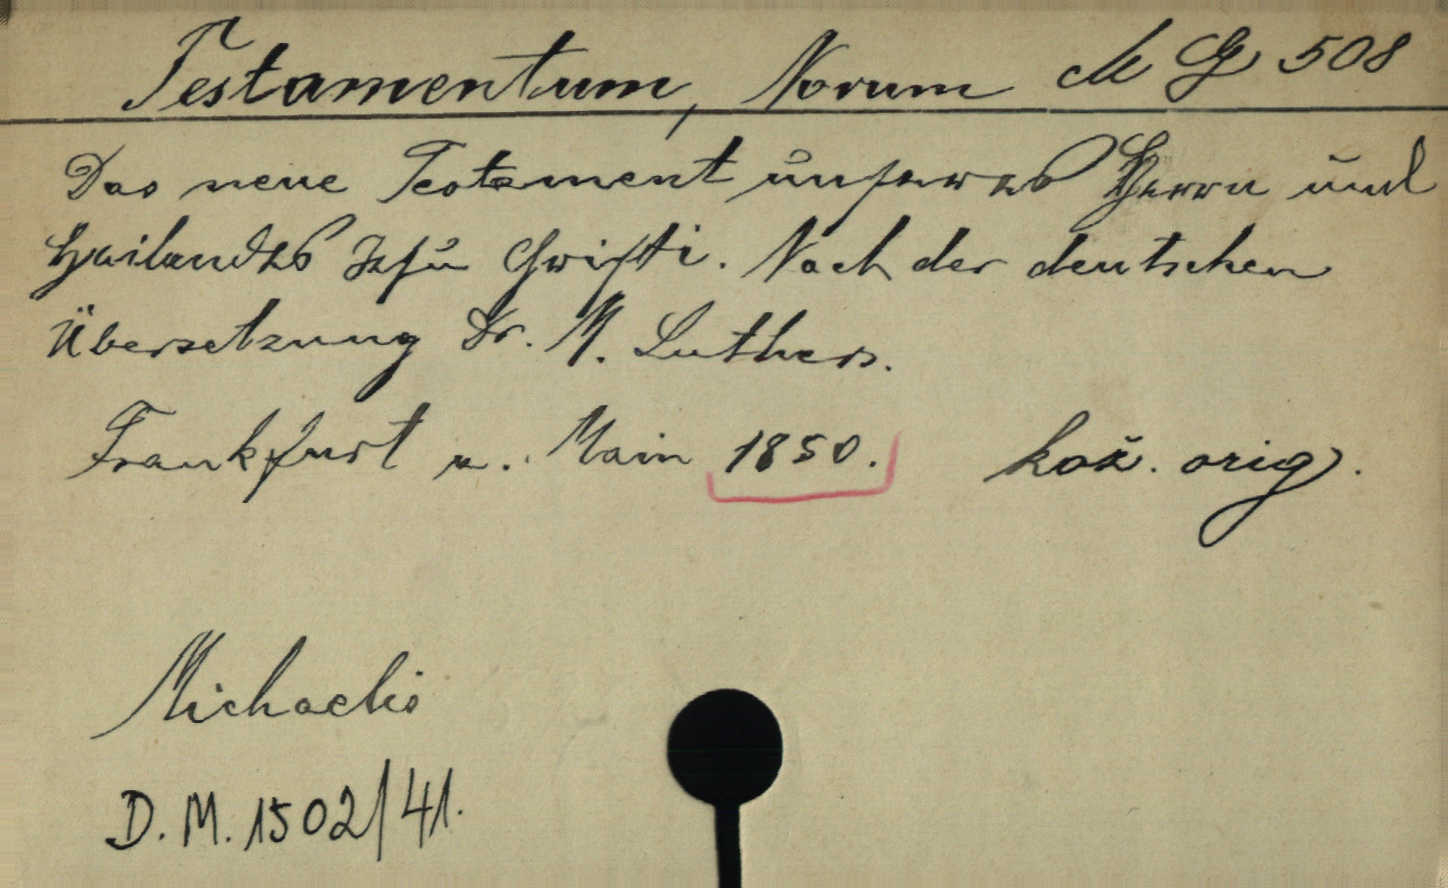 Testamentum, Novum M G 508
Das neue Testament unseres Herrn und
Heilandes Jesu Christi. Nach der deutschen
Übersetzung Dr. M. Luthers.
Frankfurt a. Main 1850. kož. orig.
Michaelis
D. M. 1502/41.